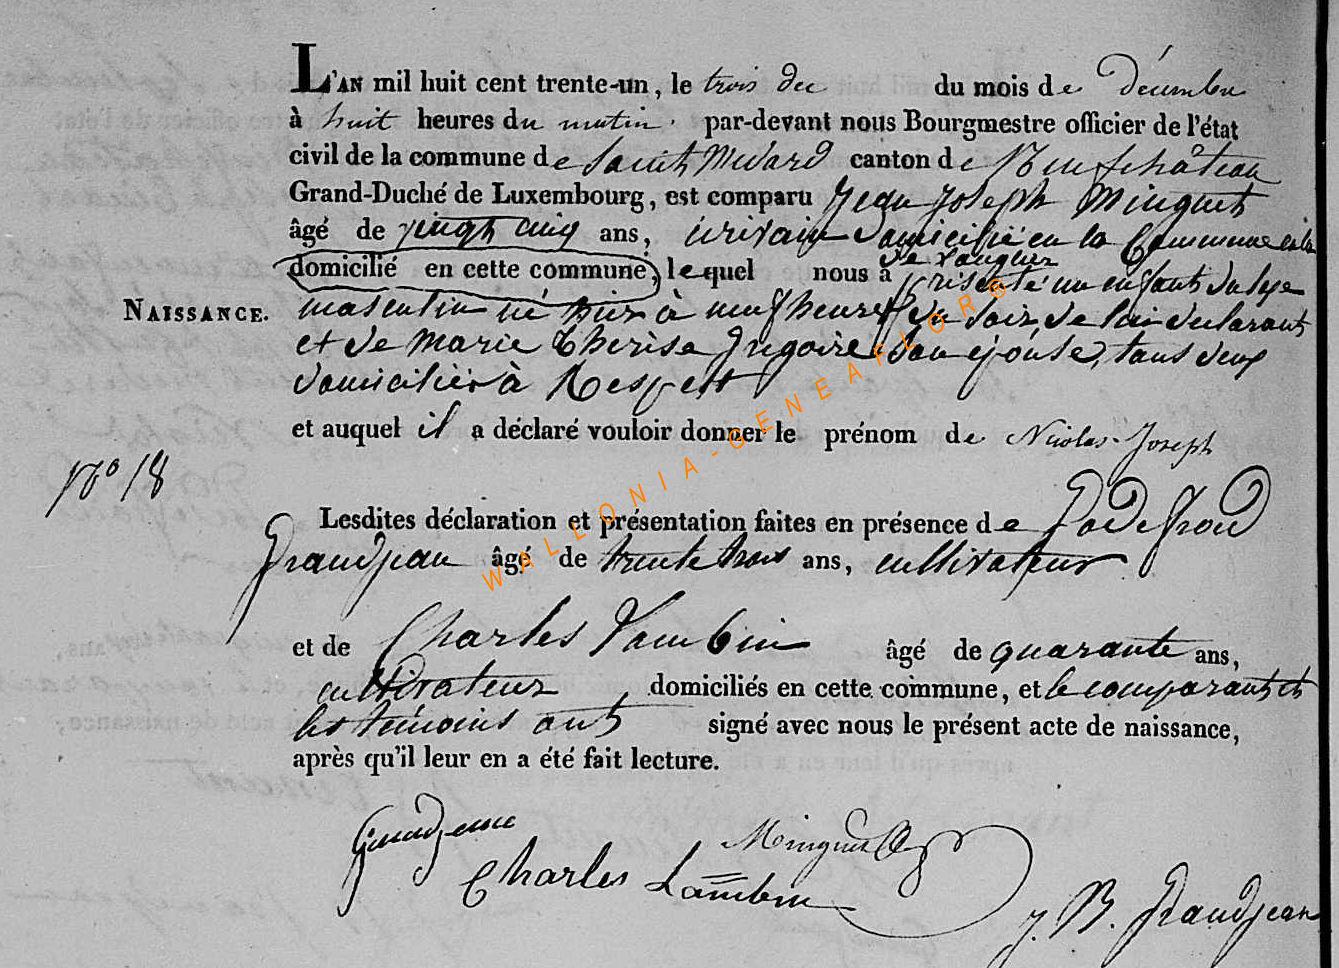 L'AN mil huit cent trente-un, le trois dec du mois de décembre
à huit heures du matin par-devant nous Bourgmestre officier de l'état
civil de la commune de Saint Medard canton de Neufchâteau
Grand-Duché de Luxembourg, est comparu Jean Joseph Minguet
âgé de vingt cinq ans, écrivain domicilié en la Commune
domicilié en cette commune, lequel nous a présenté un enfant du sexe
NAISSANCE. masculin né hier à neuf heures du soir, de lui déclarant
et de Marie Therese Gregoire son épouse, tous deux
domiciliés à
et auquel il a déclaré vouloir donner le prénom de Nicolas-Joseph
N° 18
Lesdites déclaration et présentation faites en présence de Godefroid
Grandjean âgé de trente trois ans, cultivateur
et de Charles Lambin âgé de quarante ans,
cultivateur, domiciliés en cette commune, et le comparant et
les témoins ont signé avec nous le présent acte de naissance,
après qu'il leur en a été fait lecture.
Grandjean
Minguet
Charles Lambin
J. B. Grandjean
WALLONIA-GENEAFLORE